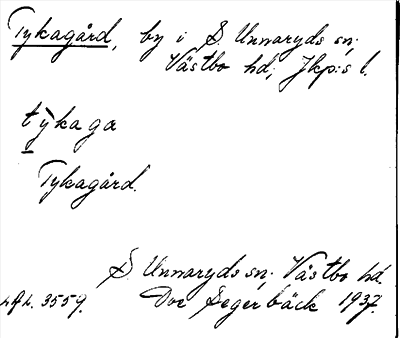 Tykagård, by i S. Unnaryds sn;
Västbo hd; Jkp:s l.
týkaga
Tykagård.
S. Unnaryds sn. Västbo hd.
Doc Segerbäck 1937.
3559.